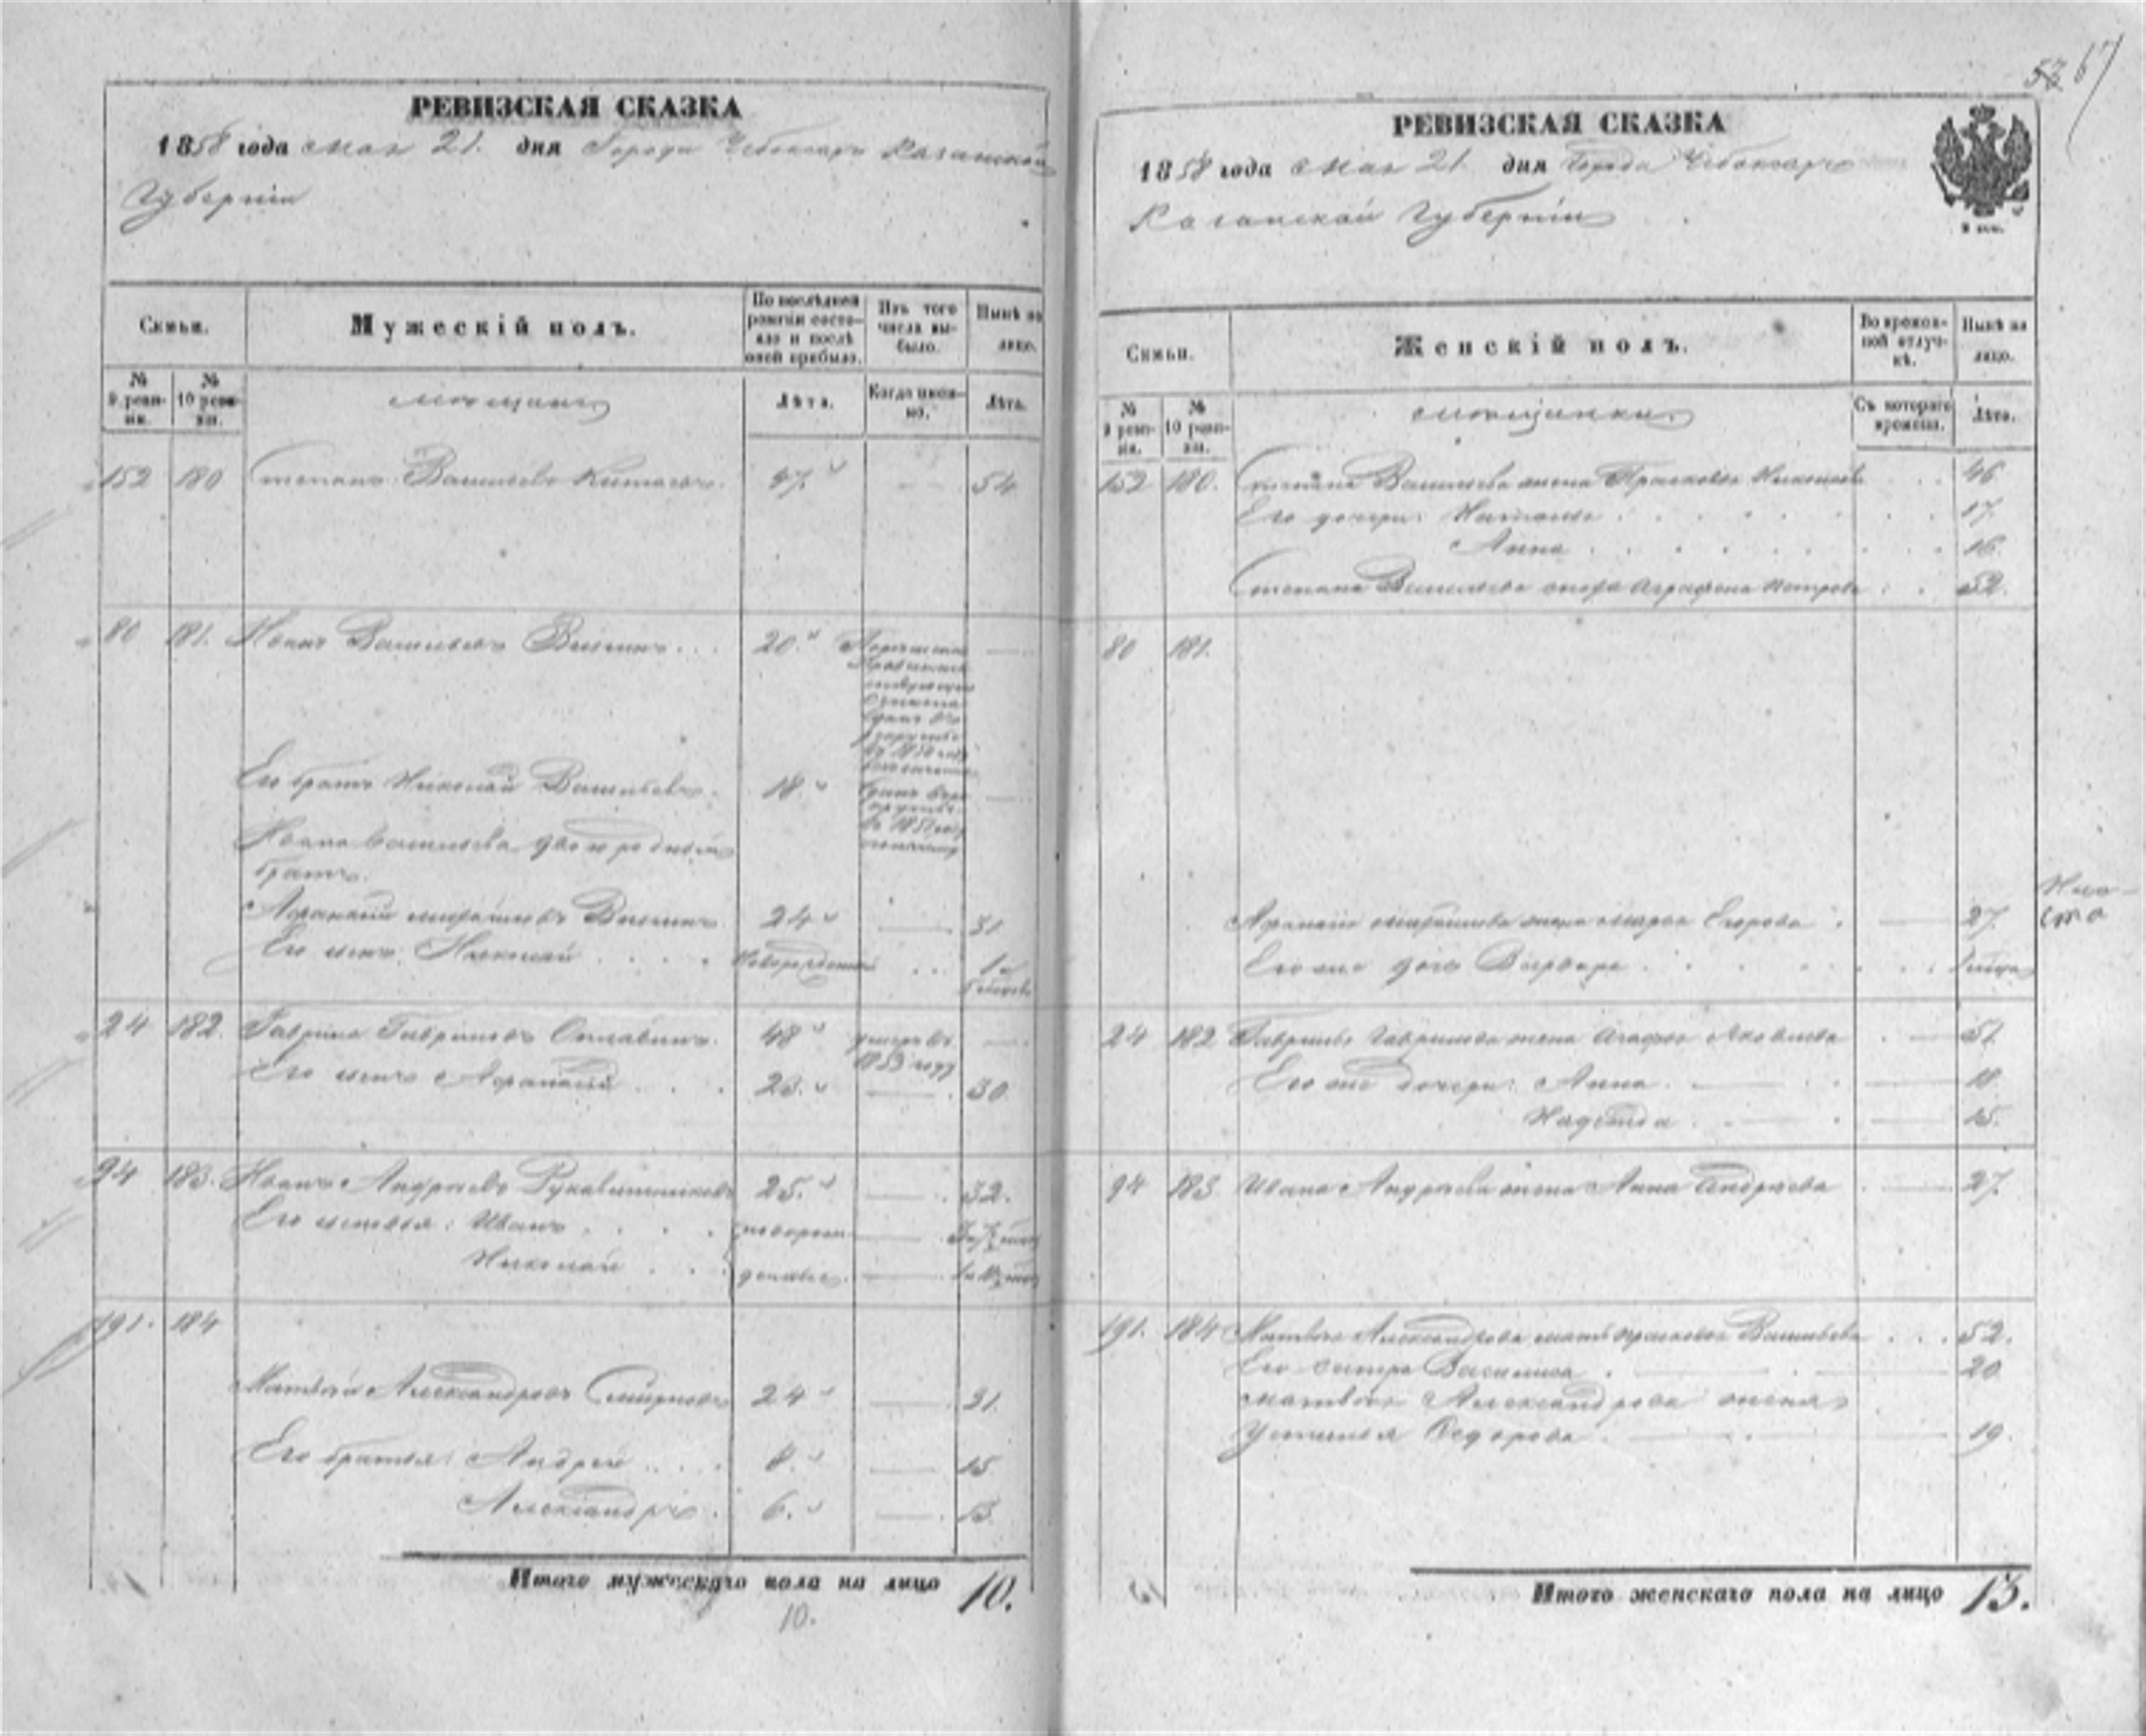 РЕВИЗСКАЯ СКАЗКА
1858 года мая 21. дня Города Чебоксаръ Казанской
Губерніи
Семьи.
Мужескій полъ.
По послѣдней ревизіи состояло и послѣ оной прибыло.
Изъ того числа выбыло.
Нынѣ на лицо.
№ 9 ревизіи.
№ 10 ревизіи.
мѣщане
Лѣта.
Когда именно.
Лѣта.
152 180 Степанъ Васильевъ 47. 54
80 181. Иванъ Васильевъ 20.
Его братъ Николай Васильевъ. 18.
Ивана Васильева двоюродный
братъ.
Афанасій Михайловъ 24 31
Его сынъ Николай новорожденный
24 182. Гаврила Гавриловъ 48 умеръ въ 1853 году
Его сынъ Афанасій 23. 30
94 183. Иванъ Андреевъ Рукавишниковъ 25. 32.
Его сыновья: Иванъ
Николай
191. 184
Матвѣй Александровъ Смирновъ 24 31.
Его братья: Андрей 8. 15
Александръ 6. 13
Итого мужескаго пола на лицо 10.
10.
67
РЕВИЗСКАЯ СКАЗКА
1858 года мая 21. дня Города Чебоксаръ
Казанской Губерніи
Семьи.
Женскій полъ.
Во временной отлучкѣ.
Нынѣ на лицо.
№ 9 ревизіи.
№ 10 ревизіи.
мѣщанки
Съ котораго времени.
Лѣта.
152 180. Степана Васильева жена Прасковья 46
Его дочери: Наталья 17.
Анна 16
Степана Васильева Аграфена Петрова 52.
80 181.
Афанасія Михайлова жена Марья Егорова 27.
Его же дочь Варвара
24 182 Гаврилы Гаврилова жена Агафья Яковлева 51
Его же дочери: Анна 18
Надежда 15.
94 183 Ивана Андреева жена Анна Андреева 27.
191. 184 Матвѣя Александрова мать Прасковья Васильева 52.
Его сестра Василиса 20
Матвѣя Александрова жена
Устинья Федорова 19.
Итого женскаго пола на лицо 13.